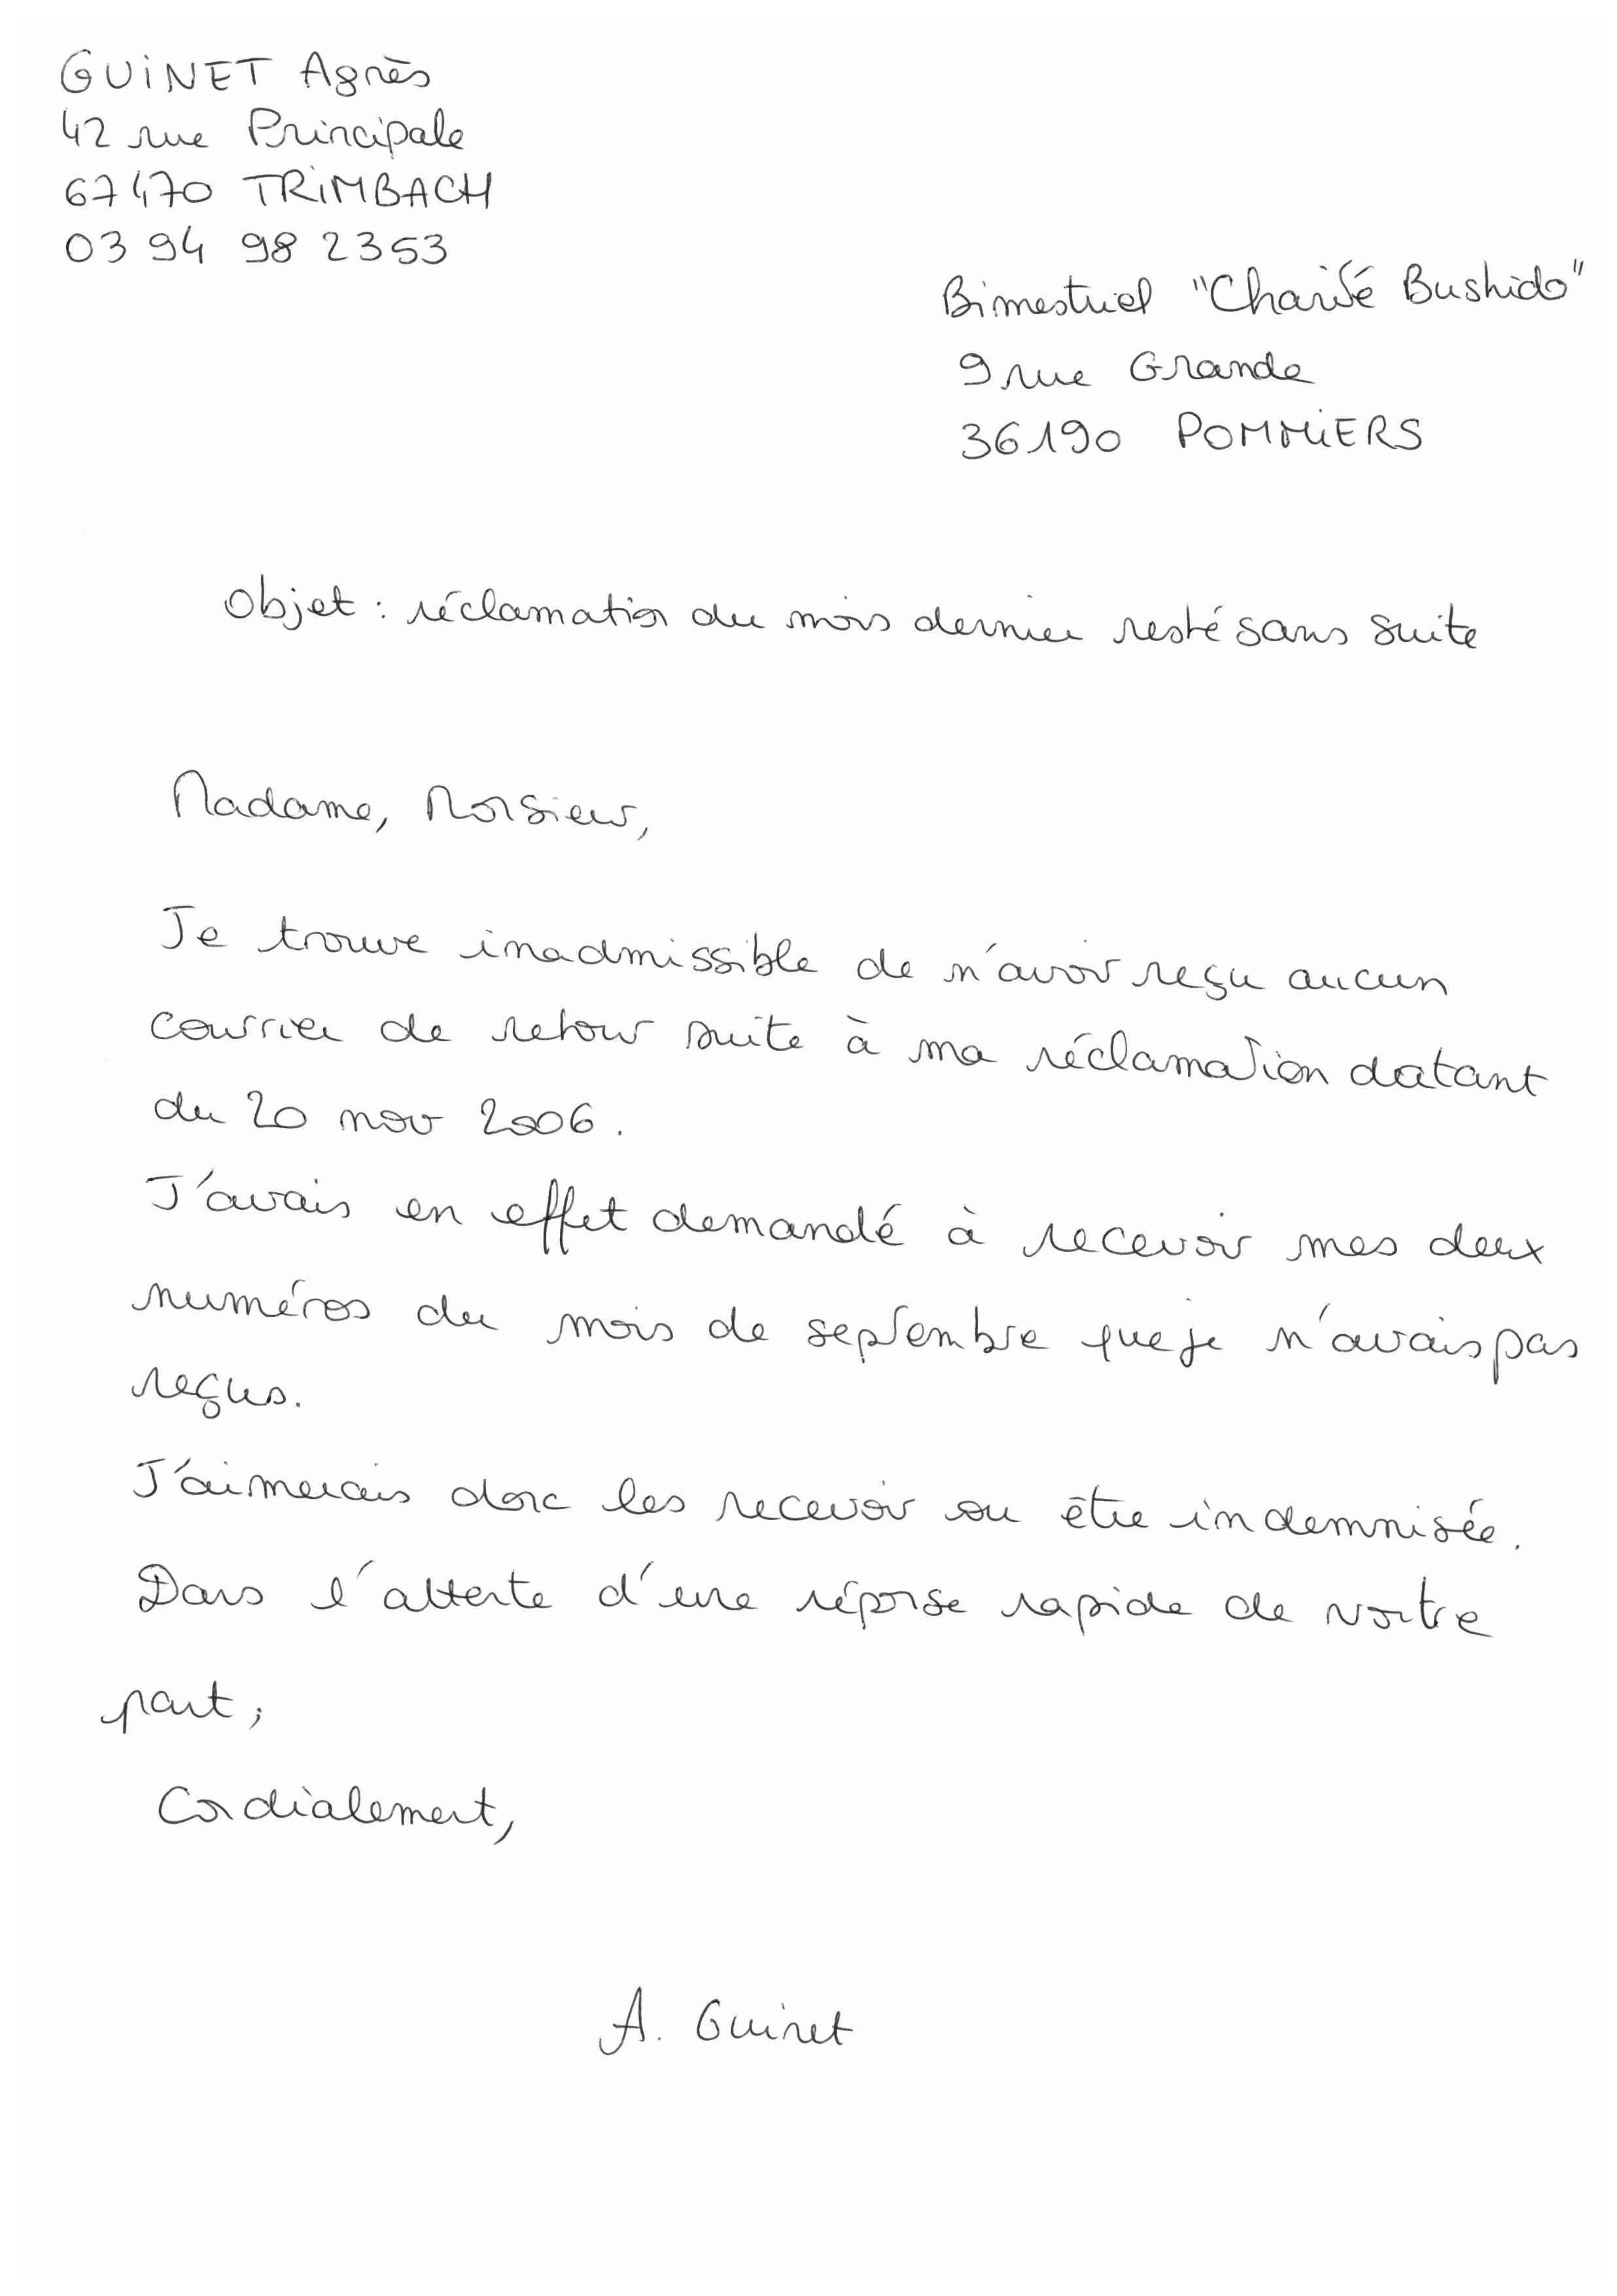 GUINET Agnès
42 rue Principale
67470 TRIMBACH
03 94 98 2353
Bimestriel "Charité Bushido"
9 rue Grande
36190 POMMIERS
Objet : réclamation du mois dernier resté sans suite
Madame, Monsieur,
Je trouve inadmissible de n'avoir reçu aucun
courrier de retour suite à ma réclamation datant
du 20 nov 2006.
J'avais en effet demandé à recevoir mes deux
numéros du mois de septembre que je n'avais pas
reçus.
J'aimerais donc les recevoir ou être indemnisée.
Dans l'attente d'une réponse rapide de votre
part,
Cordialement,
A. Guinet